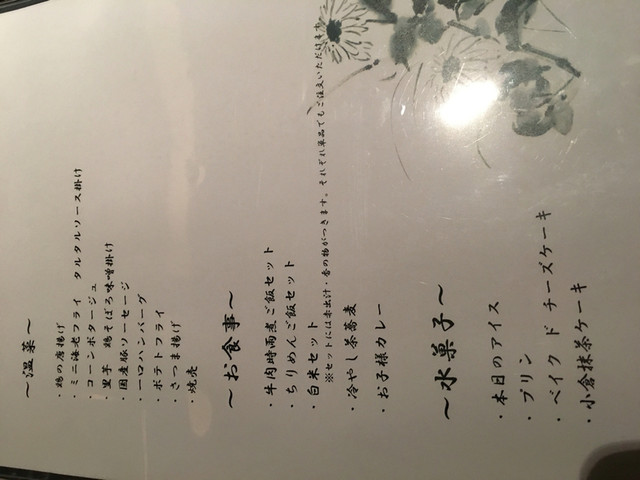 ~温菜~
・鶏の唐揚げ
・ミニ海老フライ タルタルソース掛け
・コーンポタージュ
・里芋 鶏そぼろ味噌掛け
・国産豚ソーセージ
・一口ハンバーグ
・ポテトフライ
・さつま揚げ
・焼売
~お食事~
・牛肉時雨煮ご飯セット
・ちりめんご飯セット
・白米セット
※セットには赤出汁・香の物がつきます。それぞれ単品でもご注文いただけます。
・冷やし茶蕎麦
・お子様カレー
~水菓子~
・本日のアイス
・プリン
・ベイクドチーズケーキ
・小倉抹茶ケーキ